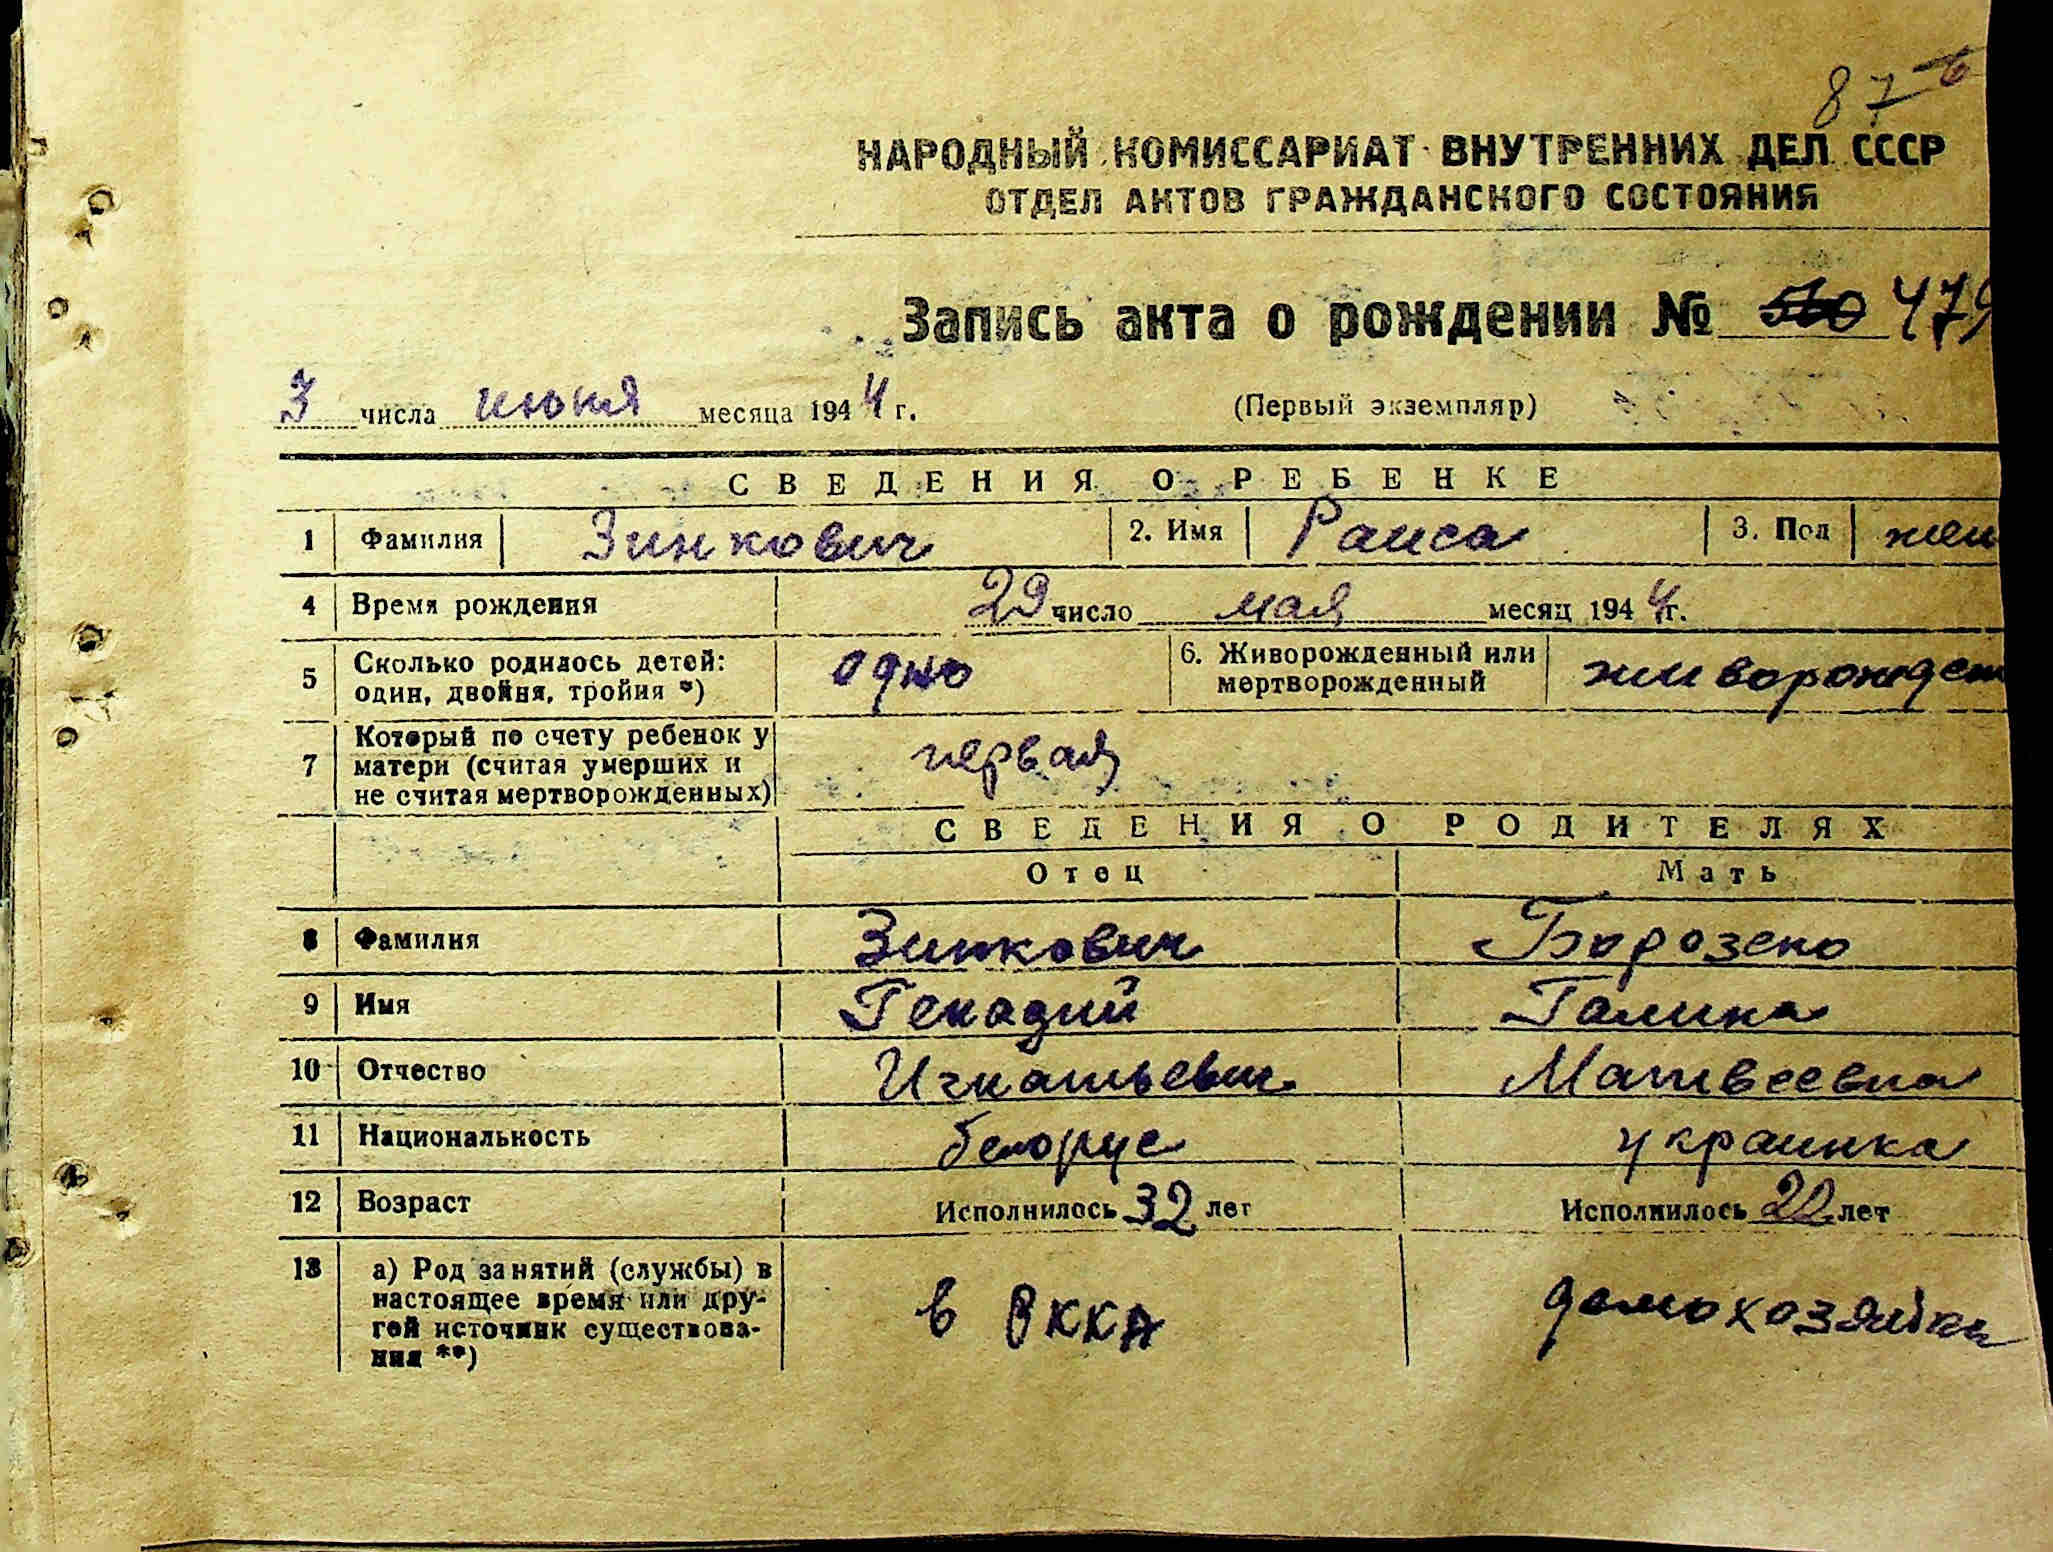 87
НАРОДНЫЙ КОМИССАРИАТ ВНУТРЕННИХ ДЕЛ СССР
ОТДЕЛ АКТОВ ГРАЖДАНСКОГО СОСТОЯНИЯ
Запись акта о рождении № 479
3 числа июня месяца 1944 г. (Первый экземпляр)
СВЕДЕНИЯ О РЕБЕНКЕ
1 Фамилия Зинкович 2. Имя Раиса 3. Пол жен
4 Время рождения 29 число мая месяц 1944 г.
5 Сколько родилось детей: один, двойня, тройня *) одно 6. Живорожденный или мертворожденный живорожден
7 Который по счету ребенок у матери (считая умерших и не считая мертворожденных) первая
СВЕДЕНИЯ О РОДИТЕЛЯХ
Отец Мать
8 Фамилия Зинкович Борозено
9 Имя Генадий Галина
10 Отчество Игнатьевич Матвеевна
11 Национальность белорус украинка
12 Возраст Исполнилось 32 лет Исполнилось 22 лет
13 а) Род занятий (службы) в настоящее время или другой источник существования **) в РККА домохозяйка